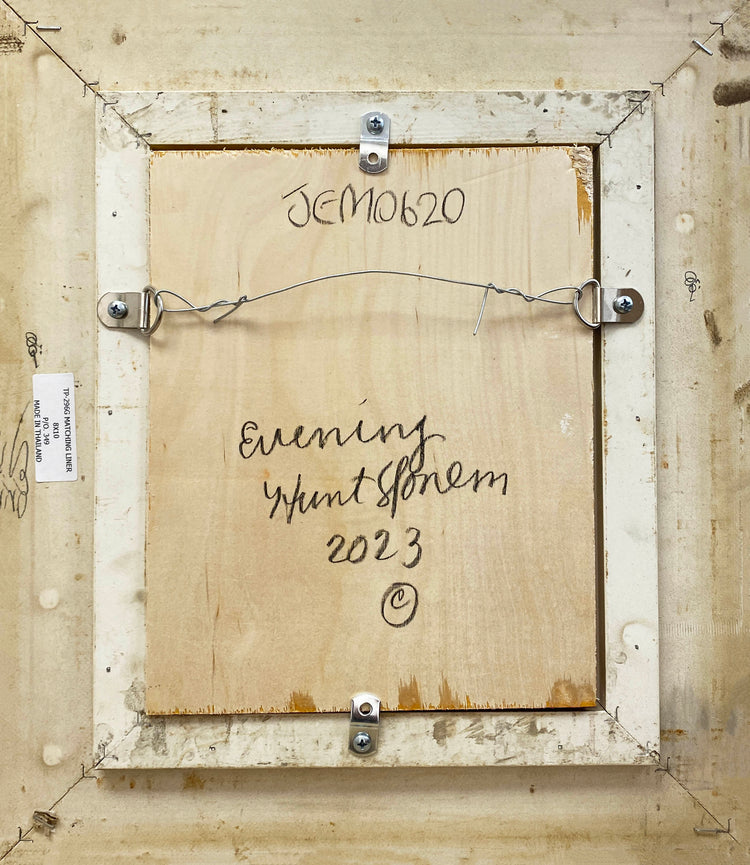 JEM0620
Evening
Hunt Slonem
2023
©
TP-296G MATCHING LINER
8X10
P/O. 349
MADE IN THAILAND